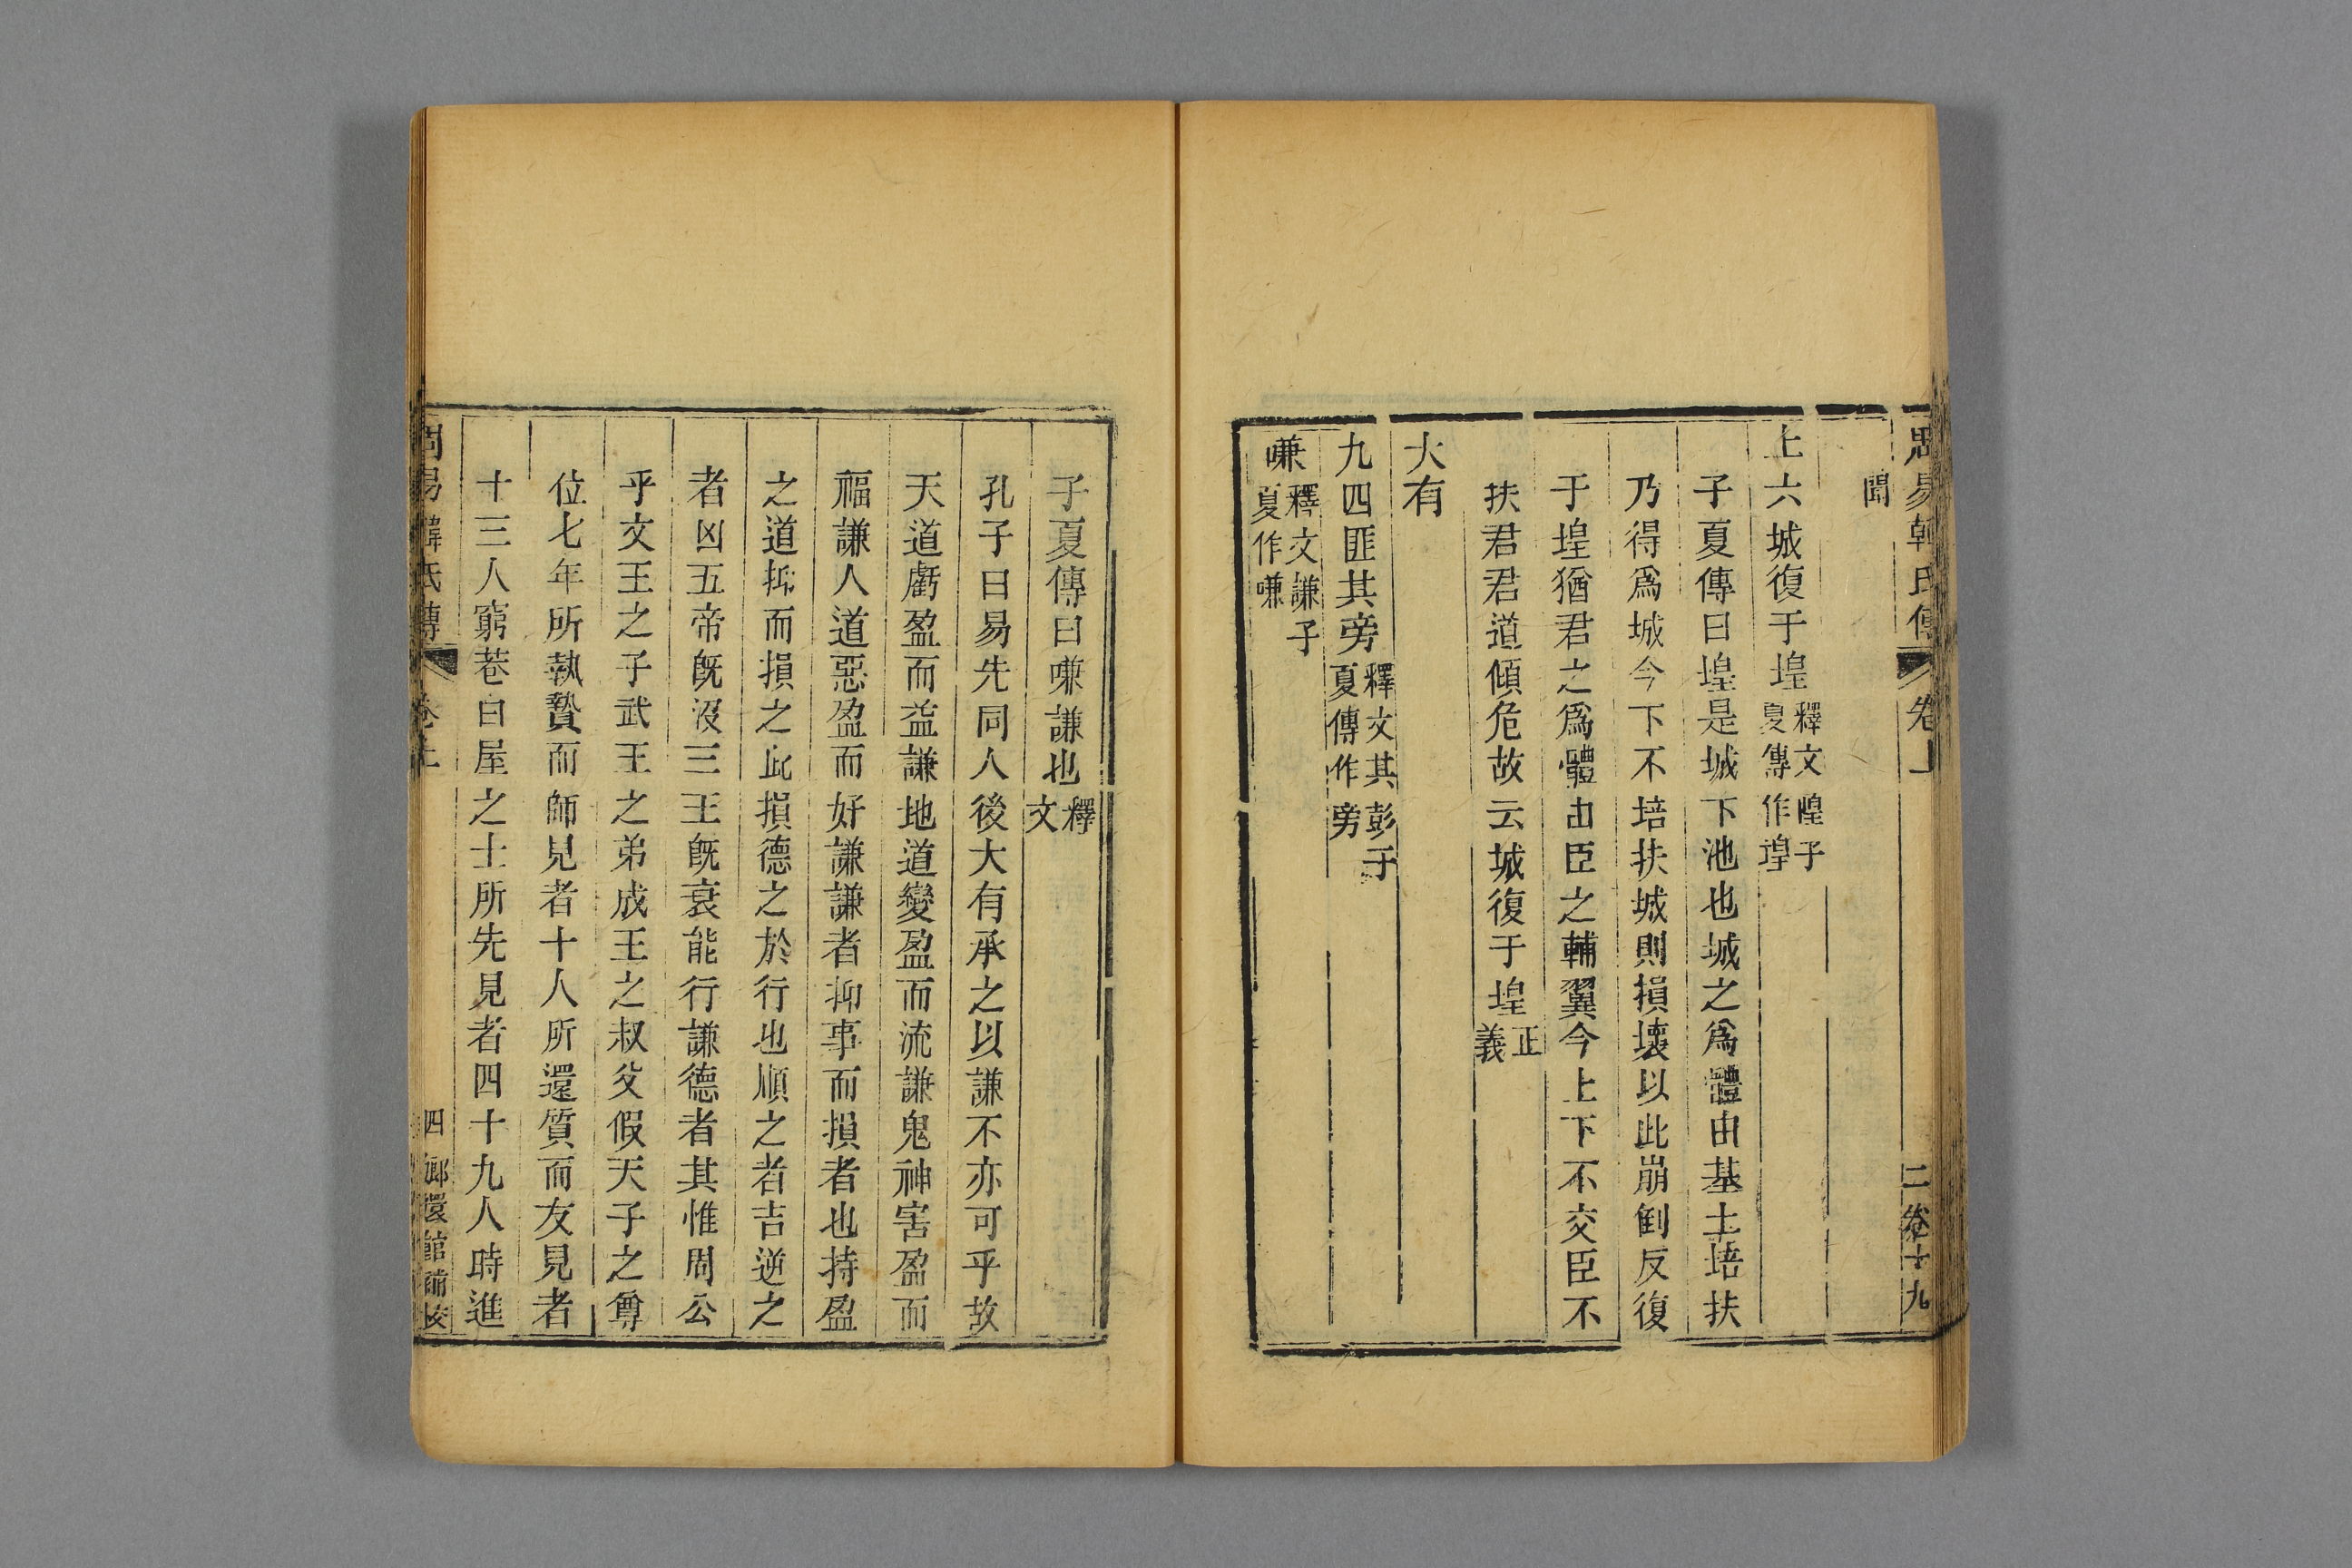 周易韓氏傳 卷上 二卷十九
聞
上六城復于堭釋文隍子夏傳作堭
子夏傳曰堭是城下池也城之爲體由基土培扶
乃得爲城今下不培扶城則損壞以此崩倒反復
于堭猶君之爲體由臣之輔翼今上下不交臣不
扶君君道傾危故云城復于堭正義
大有
九四匪其旁釋文其彭子夏傳作旁
嗛釋文謙子夏作嗛
子夏傳曰嗛謙也釋文
孔子曰易先同人後大有承之以謙不亦可乎故
天道虧盈而益謙地道變盈而流謙鬼神害盈而
福謙人道惡盈而好謙謙者抑事而損者也持盈
之道抑而損之此損德之於行也順之者吉逆之
者凶五帝旣沒三王旣衰能行謙德者其惟周公
乎文王之子武王之弟成王之叔父假天子之尊
位七年所執贄而師見者十人所還質而友見者
十三人窮巷白屋之士所先見者四十九人時進
周易韓氏傳 卷上 四 嫏嬛館補校